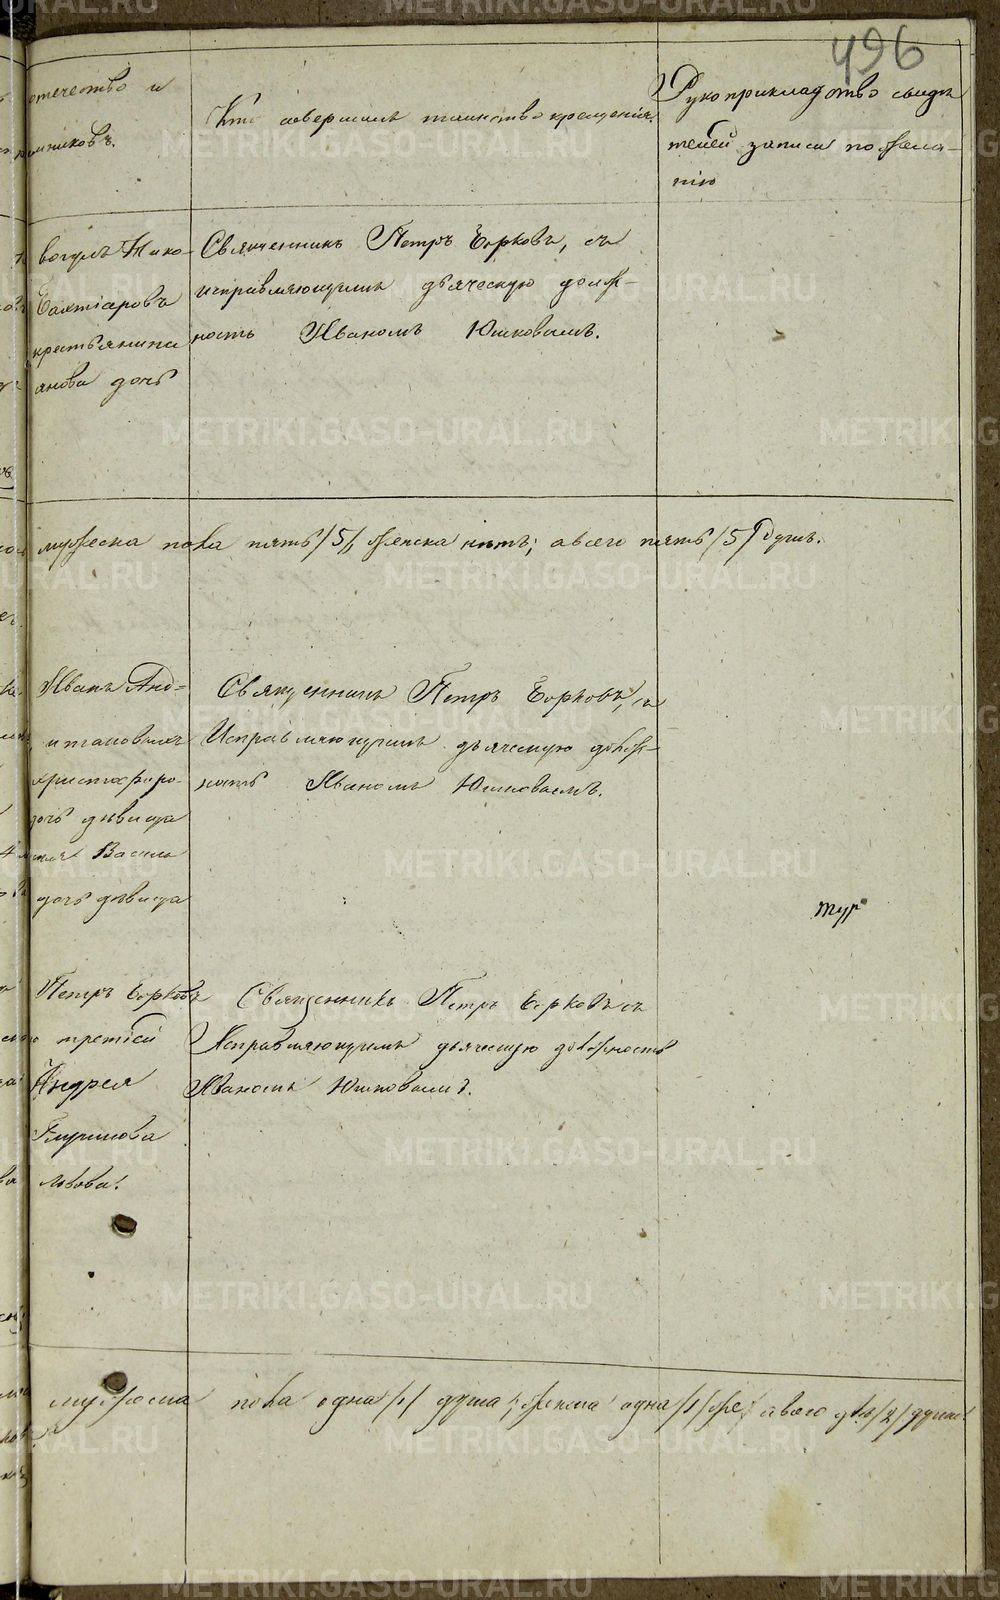 496
отечество и
Кто совершалъ таинство крещенія.
Рукоприкладство свидѣ
телей записи по жела-
нію
вогулъ Нико-
Бахтіаровъ
крестьянина
анова дочь
Священникъ Петръ Боярковъ, съ
исправляющимъ дьяческую долж-
ность Иваномъ Юшковымъ.
мужеска пола пять /5/, женска нѣтъ; а всего пять /5/ душъ.
Иванъ Анд=
христофоро-
дочь дѣвица
Василь
дочь дѣвица
Священникъ Петръ Боярковъ, съ
Исправляющимъ дьяческую долж-
ность Иваномъ Юшковымъ.
тур
Петръ Боярковъ
третьей
Андрея
львова.
Священникъ Петръ Боярковъ съ
Исправляющимъ дьяческую должность
Иваномъ Юшковымъ.
мужеска пола одна /1/ душа, женска одна /1/ же, а всего двѣ /2/ души.
METRIKI.GASO-URAL.RU